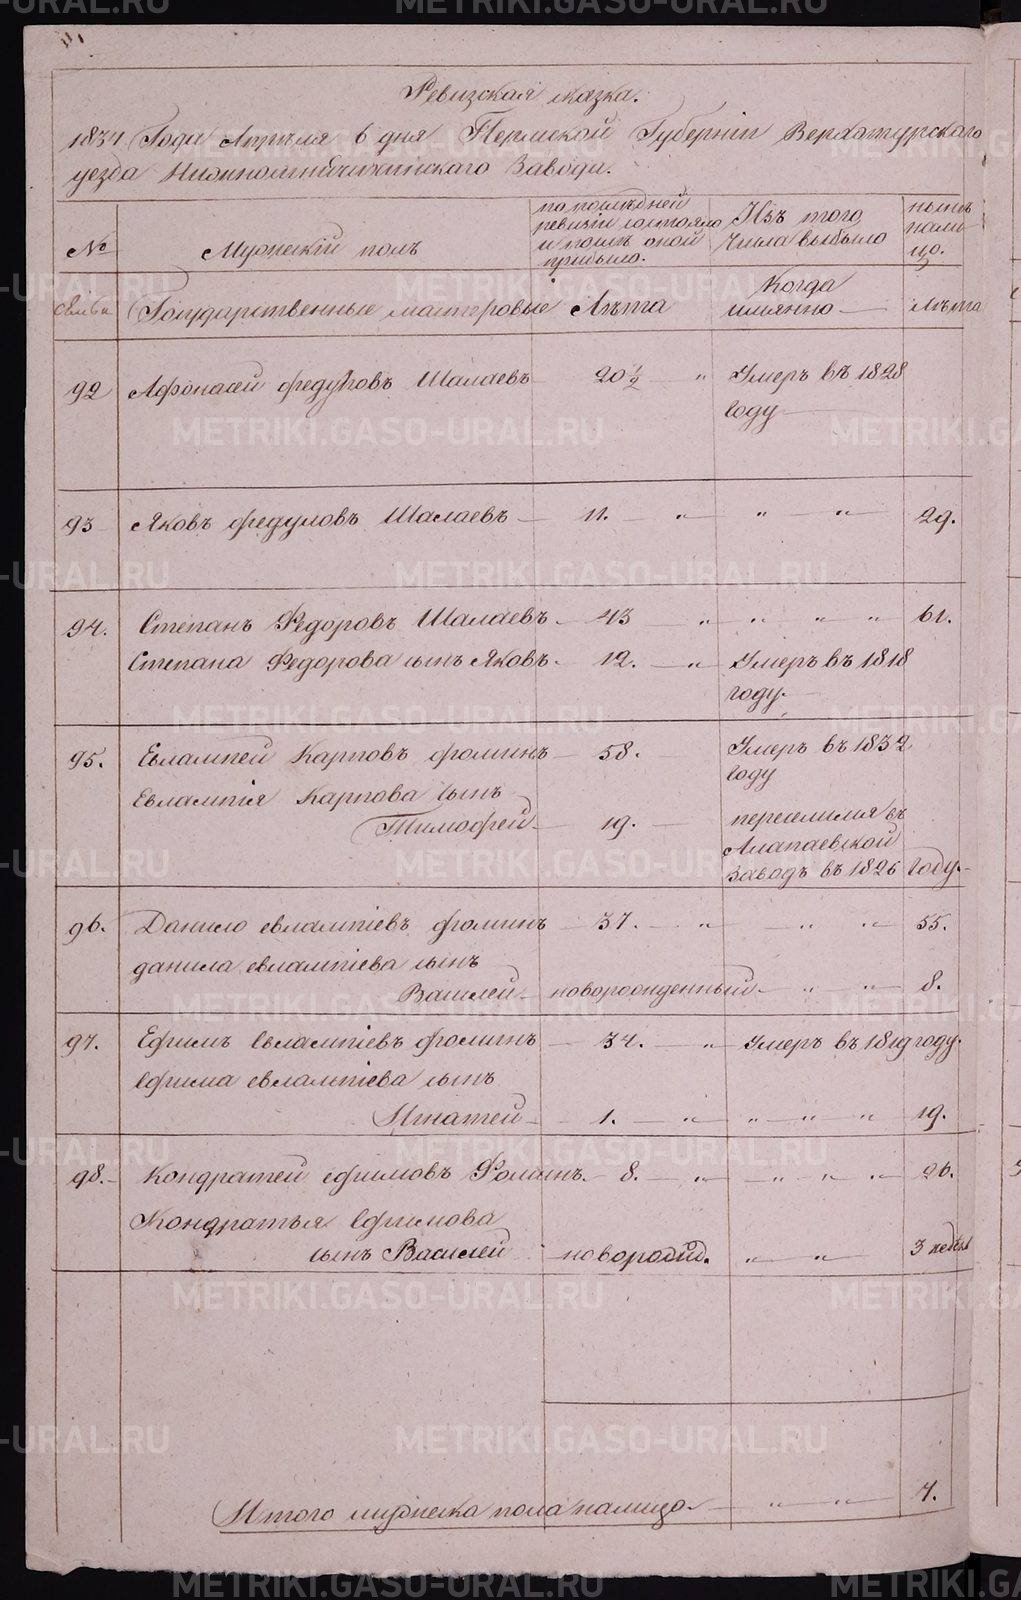 Ревизская сказка.
1834 Года Апрѣля 6 дня Пермской Губерніи Верхотурскаго
уезда Завода.
№
Мужескій полъ
по последней
ревизіи состояло
и послѣ оной
прибыло.
Изъ того
числа выбыло
нынѣ
нали-
цо.
Семьи
Государственные мастеровые
Лѣта
Когда
имянно
Лѣта
92 Афонасей Федуловъ Шалаевъ 20 ½ " Умеръ въ 1828
году
93 Яковъ Федуловъ Шалаевъ 11. " " " 29.
94. Степанъ Федоровъ Шалаевъ 43 " " " " 61.
Степана Федорова сынъ Яковъ 12. " Умеръ въ 1818
году.
95. Евлампей Карповъ Фоминъ 58. Умеръ въ 1832
году
Евлампія Карпова сынъ
Тимофей 19. переселился въ
Алапаевской
заводъ въ 1826 году.
96. Данило Евлампіевъ Фоминъ 37. " " " 55.
Данила Евлампіева сынъ
Василей новорожденный " " 8.
97. Ефимъ Евлампіевъ Фоминъ 34. " Умеръ въ 1819 году.
Ефима Евлампіева сынъ
Игнатей 1. " " " " 19.
98. Кондратей Ефимовъ Фоминъ 8. " " " " 26.
Кондратья Ефимова
сынъ Василей " " 3 недел
Итого мужеска пола налицо " " 7.
METRIKI.GASO-URAL.RU